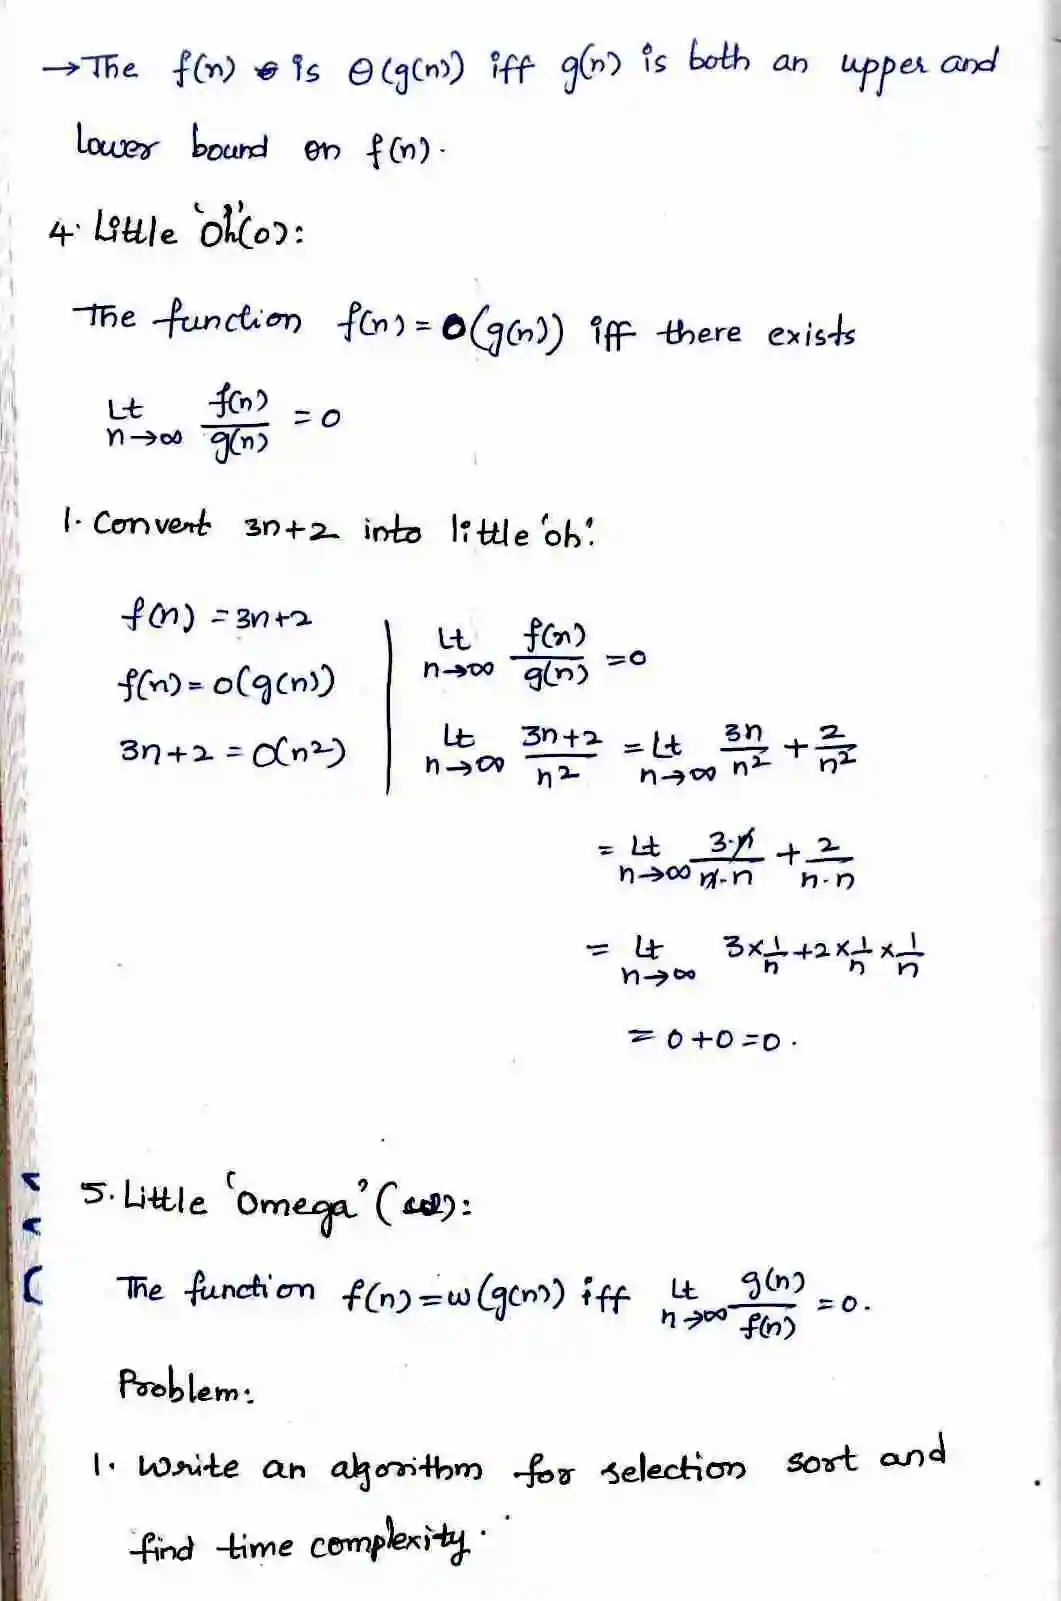 →The f(n) is Θ(g(n)) iff g(n) is both an upper and
lower bound on f(n).
4. Little 'oh'(o):
The function f(n) = o(g(n)) iff there exists
Lt n→∞ f(n)/g(n) = 0
1. Convert 3n+2 into little 'oh'.
f(n) = 3n+2
f(n) = o(g(n))
3n+2 = O(n²)
Lt n→∞ f(n)/g(n) = 0
Lt n→∞ 3n+2/n² = Lt n→∞ 3n/n² + 2/n²
= Lt n→∞ 3·n/n·n + 2/n·n
= Lt n→∞ 3×1/n + 2×1/n×1/n
= 0+0=0.
5. Little 'omega' (ω):
The function f(n) = w(g(n)) iff Lt n→∞ g(n)/f(n) = 0.
Problem:
1. Write an algorithm for selection sort and
find time complexity.